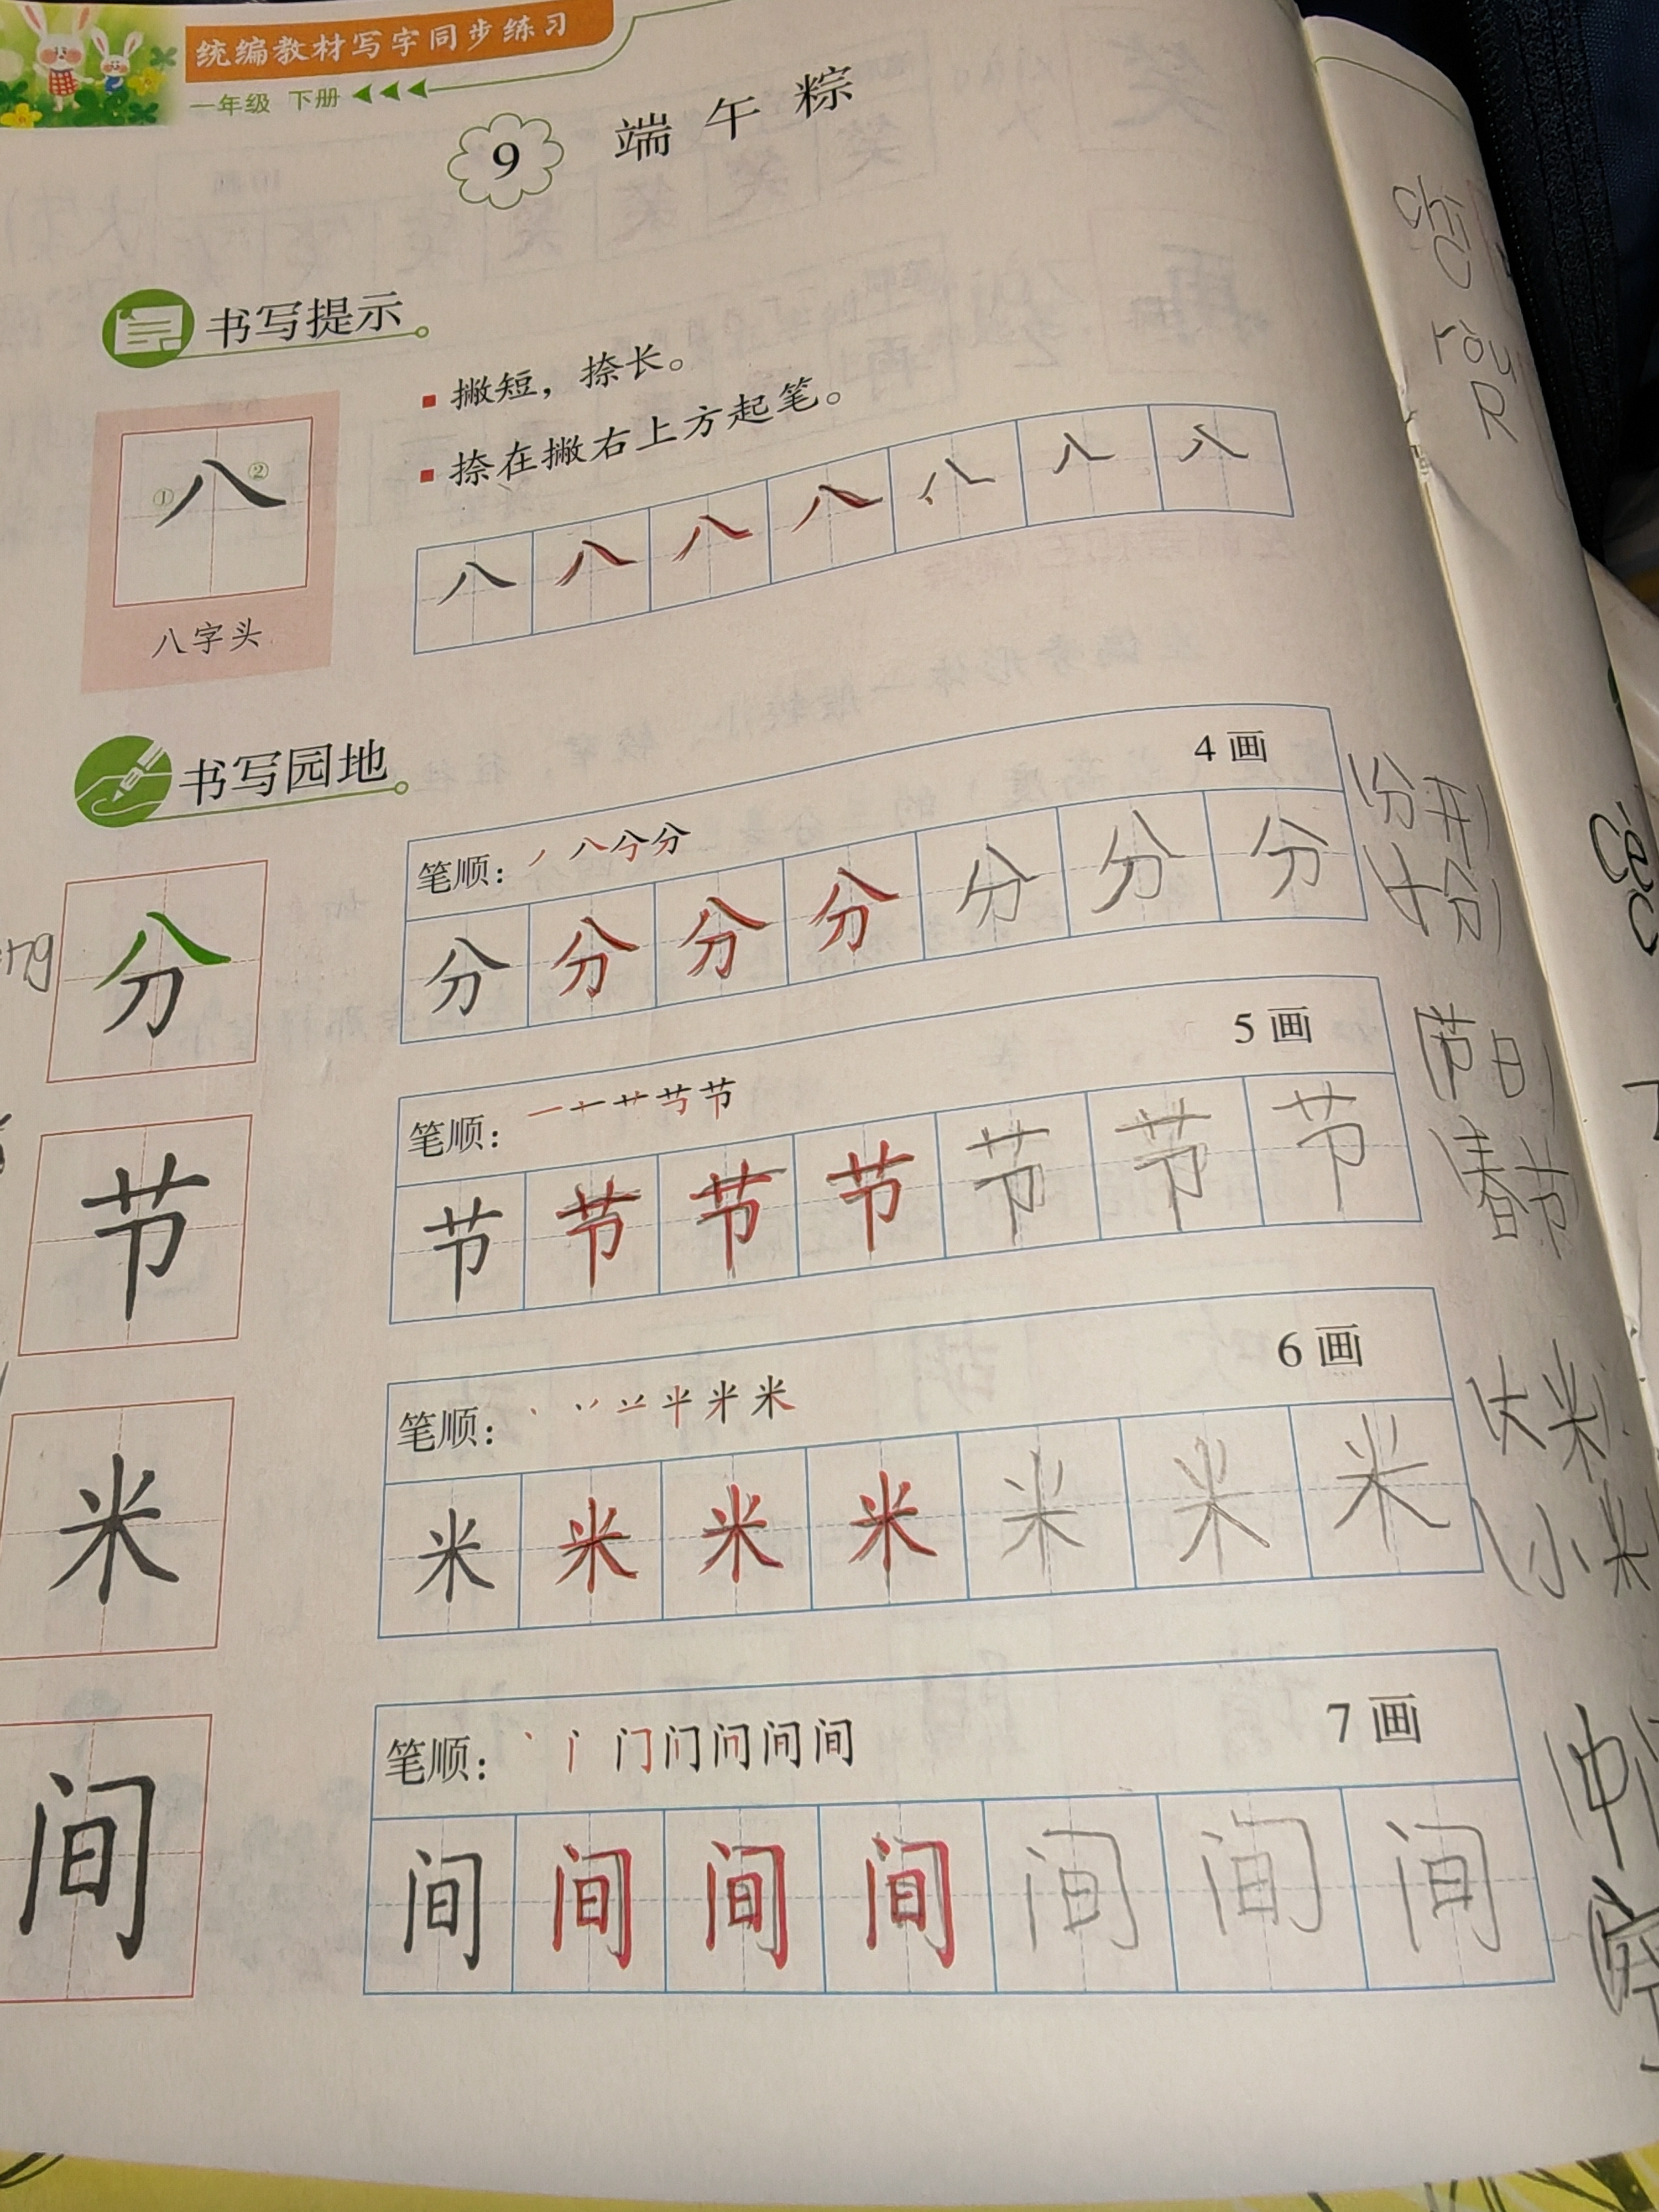 统编教材写字同步练习
一年级 下册
9 端午粽
书写提示
撇短，捺长。
捺在撇右上方起笔。
① ②
八
八字头
八 八 八 八 八 八 八
书写园地
4 画
笔顺：丿 八 分 分
分
分 分 分 分 分 分 分
(分开)
(十分)
5 画
笔顺：一 十 艹 艿 节
节
节 节 节 节 节 节 节
(节日)
(春节)
6 画
笔顺：丶 丷 䒑 半 米 米
米
米 米 米 米 米 米 米
(大米)
(小米
7 画
笔顺：丶 丨 门 门 问 间 间
间
间 间 间 间 间 间 间
(中